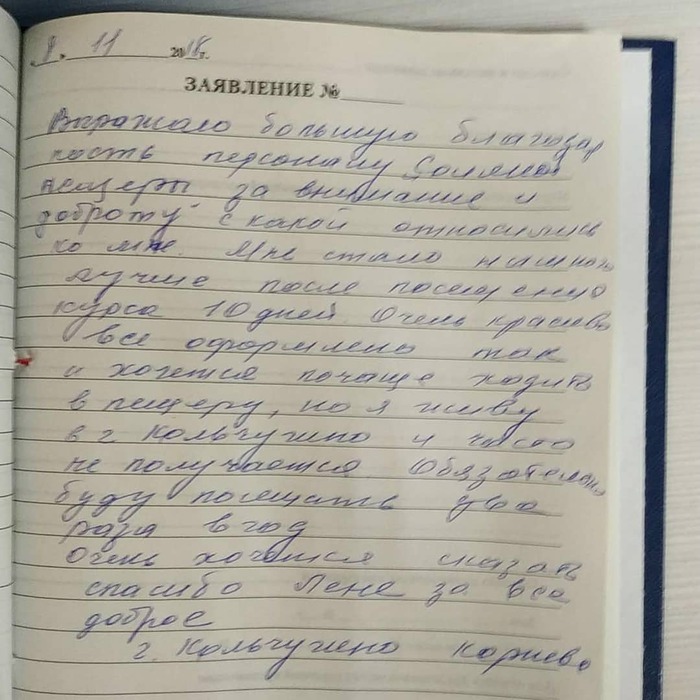 8. 11 2018г.
ЗАЯВЛЕНИЕ №
Выражаю большую благодар
ность персоналу Соляной
пещеры за внимание и
доброту с какой относились
ко мне. Мне стало намного
лучше после посещения
курса 10 дней. Очень красиво
все оформлено так
и хочется почаще ходить
в пещеру, но я живу
в г. Кольчугино и часто
не получается. Обязательно
буду посещать два
раза в год
Очень хочется сказать
спасибо Лене за все
доброе
г. Кольчугино Корнева